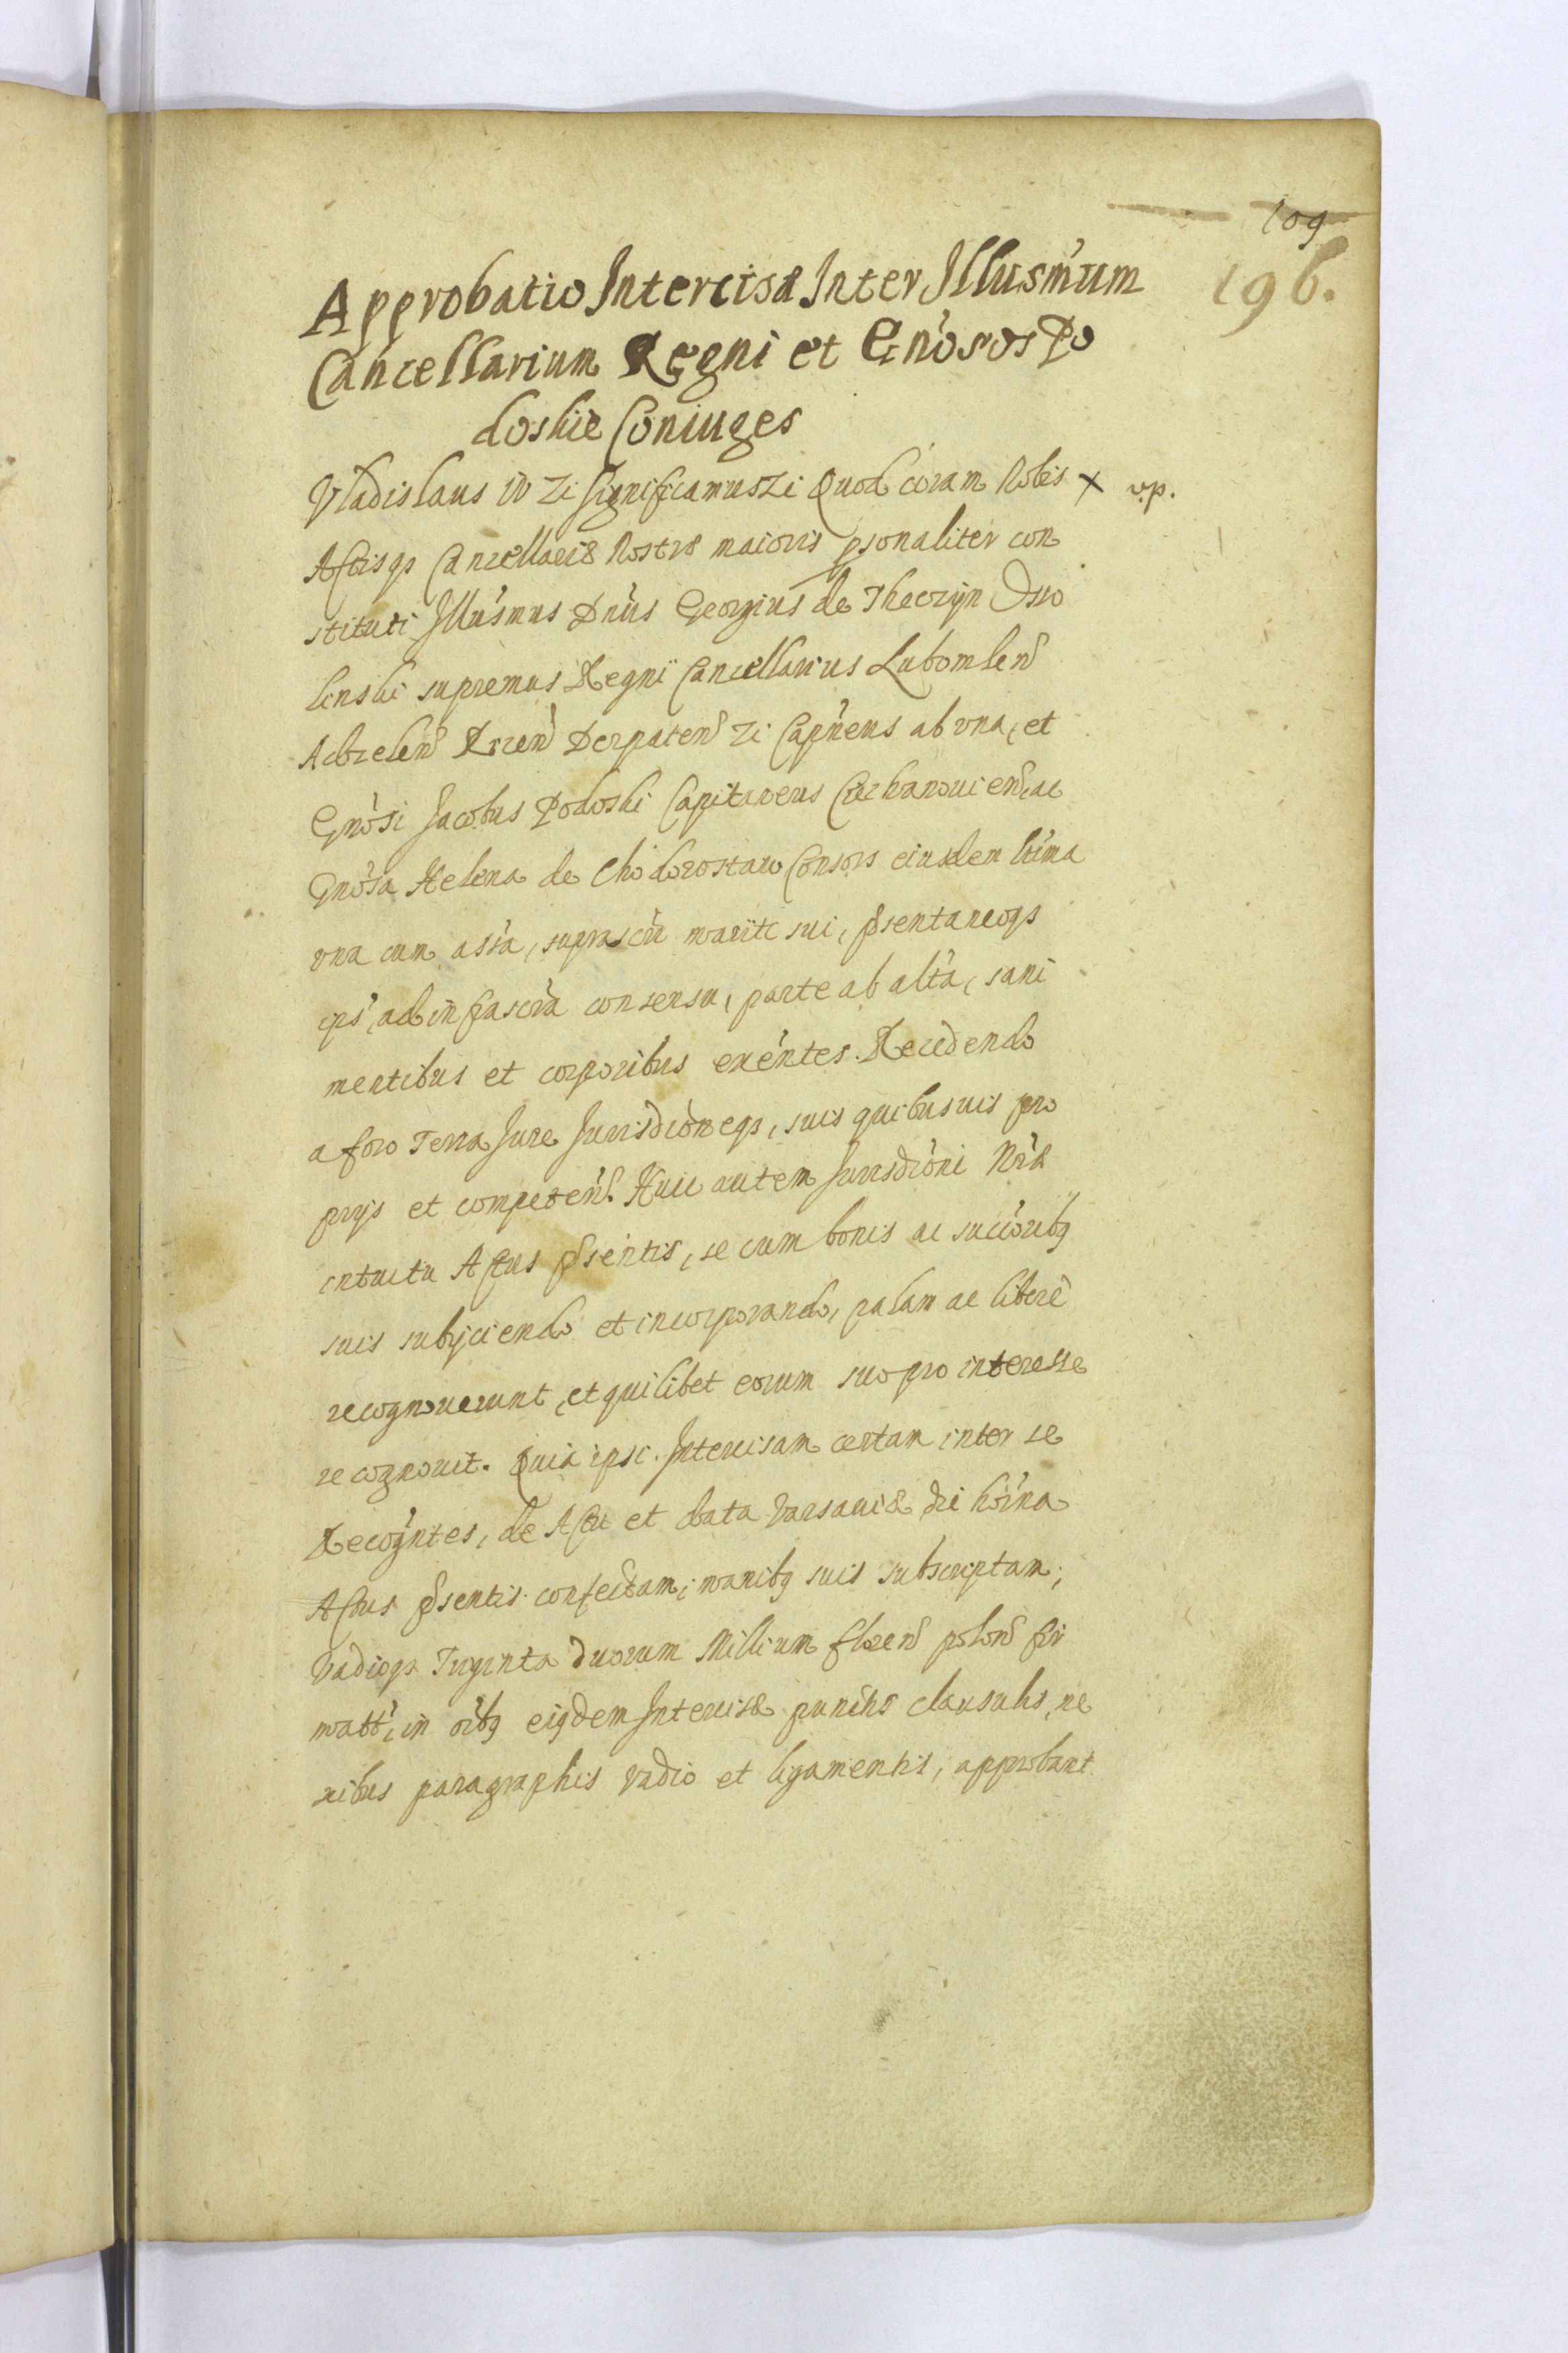 109
196.
Approbatio Intercisæ Inter Illusm̃um
Cancellarium Regni et Gñosos Po
doskie Coniuges
Vladislaus IV Zi Significamus Zi Quod coram Nobis × v.p.
Actisqs Cancellariæ Nostræ maioris psonaliter con
stituti Illus̃mus Dn̄us Georgius de Theczijn Osso
linski supremus Regni Cancellarius Lubomlen̄
Adzelen̄ Derpaten̄ Zi Cap̃neus ab vna, et
Gn̄osi Jacobus Podoski Capitaneus Ciechanouien̄. ac
Gnõsa Helena de Chodorostaw Consors eiusdem ltima
vna cum assã, suprascr̃i mariti sui, p̄sentaneoqs
eps̃, ad infrascr̃a consensu, parte ab altã, sani
mentibus et corporibus exẽntes. Recedendo
a foro Terra Jure Jurisdiõneqs, suis quibusuis pro
prijs et competeñ. Huic autem Jurisdiõni Nr̃æ
intuitu Actus p̄sentis, se cum bonis ac succõribq
suis subijciendo et incorporando, palam ac liberè
recognouerunt, et quilibet eorum suo pro interesse
recognouit. Quia ipsi Intercisam certam inter se
Recog̃ntes, de Actu et data Varsauiæ die hõrna
Actus p̄sentis confectam, manibq suis subscriptam,
Vadioqs Triginta duorum Millium floren̄ polon̄ fir
matã, in õibq eiqdem Intercisæ punctis clausulis, ne
xibus paragraphis vadio et ligamentis, approbant